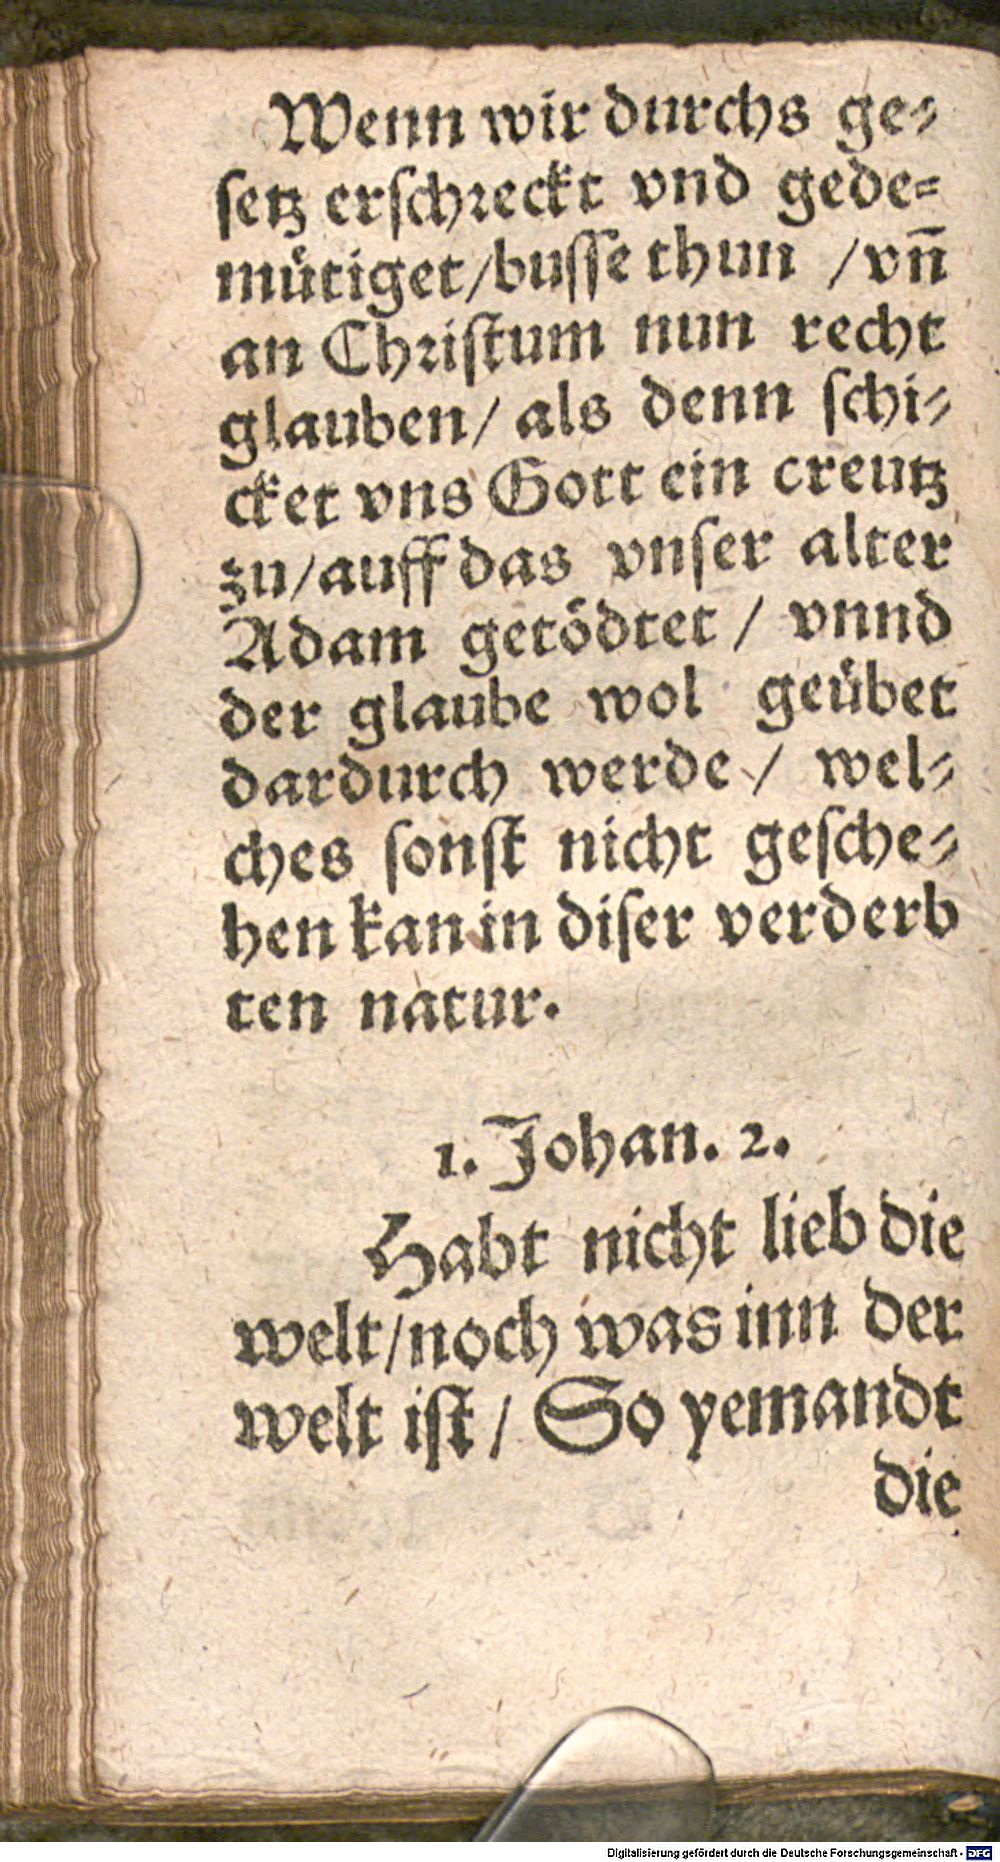 Wenn wir durchs ge⸗
ſetz erſchꝛeckt vnd gede⸗
mütiget/buſſe thun /vn̄
an Chꝛiſtum nun recht
glauben/ als denn ſchi⸗
cket vns Gott ein creutz
zu/auff das vnſer alter
Adam getödtet / vnnd
der glaube wol geübet
dardurch werde / wel⸗
ches ſonſt nicht geſche⸗
hen kan in diſer verderb
ten natur.
1. Johan. 2.
Habt nicht lieb die
welt/noch was inn der
welt iſt / So yemandt
die
Digitalisierung gefördert durch die Deutsche Forschungsgemeinschaft - DFG